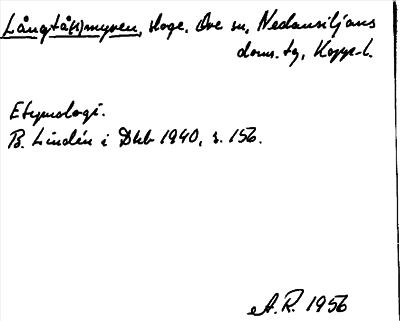 Långtå(s)myren, skoge. Ore sn, Nedansiljans
doms. tg, Kopp. l.
Etymologi.
B. Lindén i Dhb 1940, s. 156.
A. R. 1956